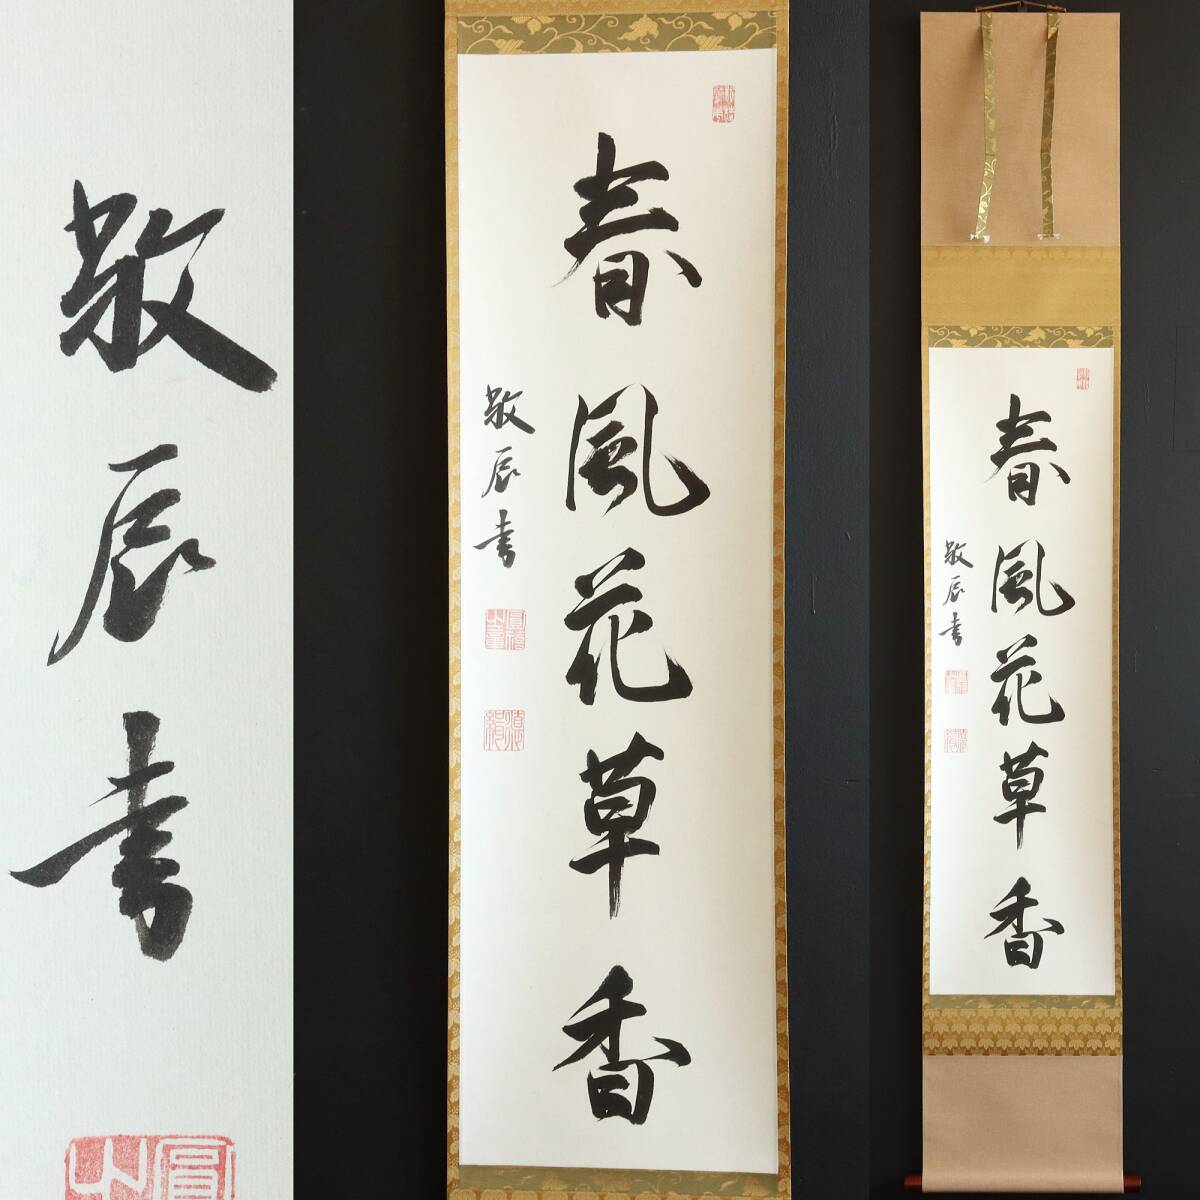 敬辰書
春風花草香
敬辰書
春風花草香
敬辰書